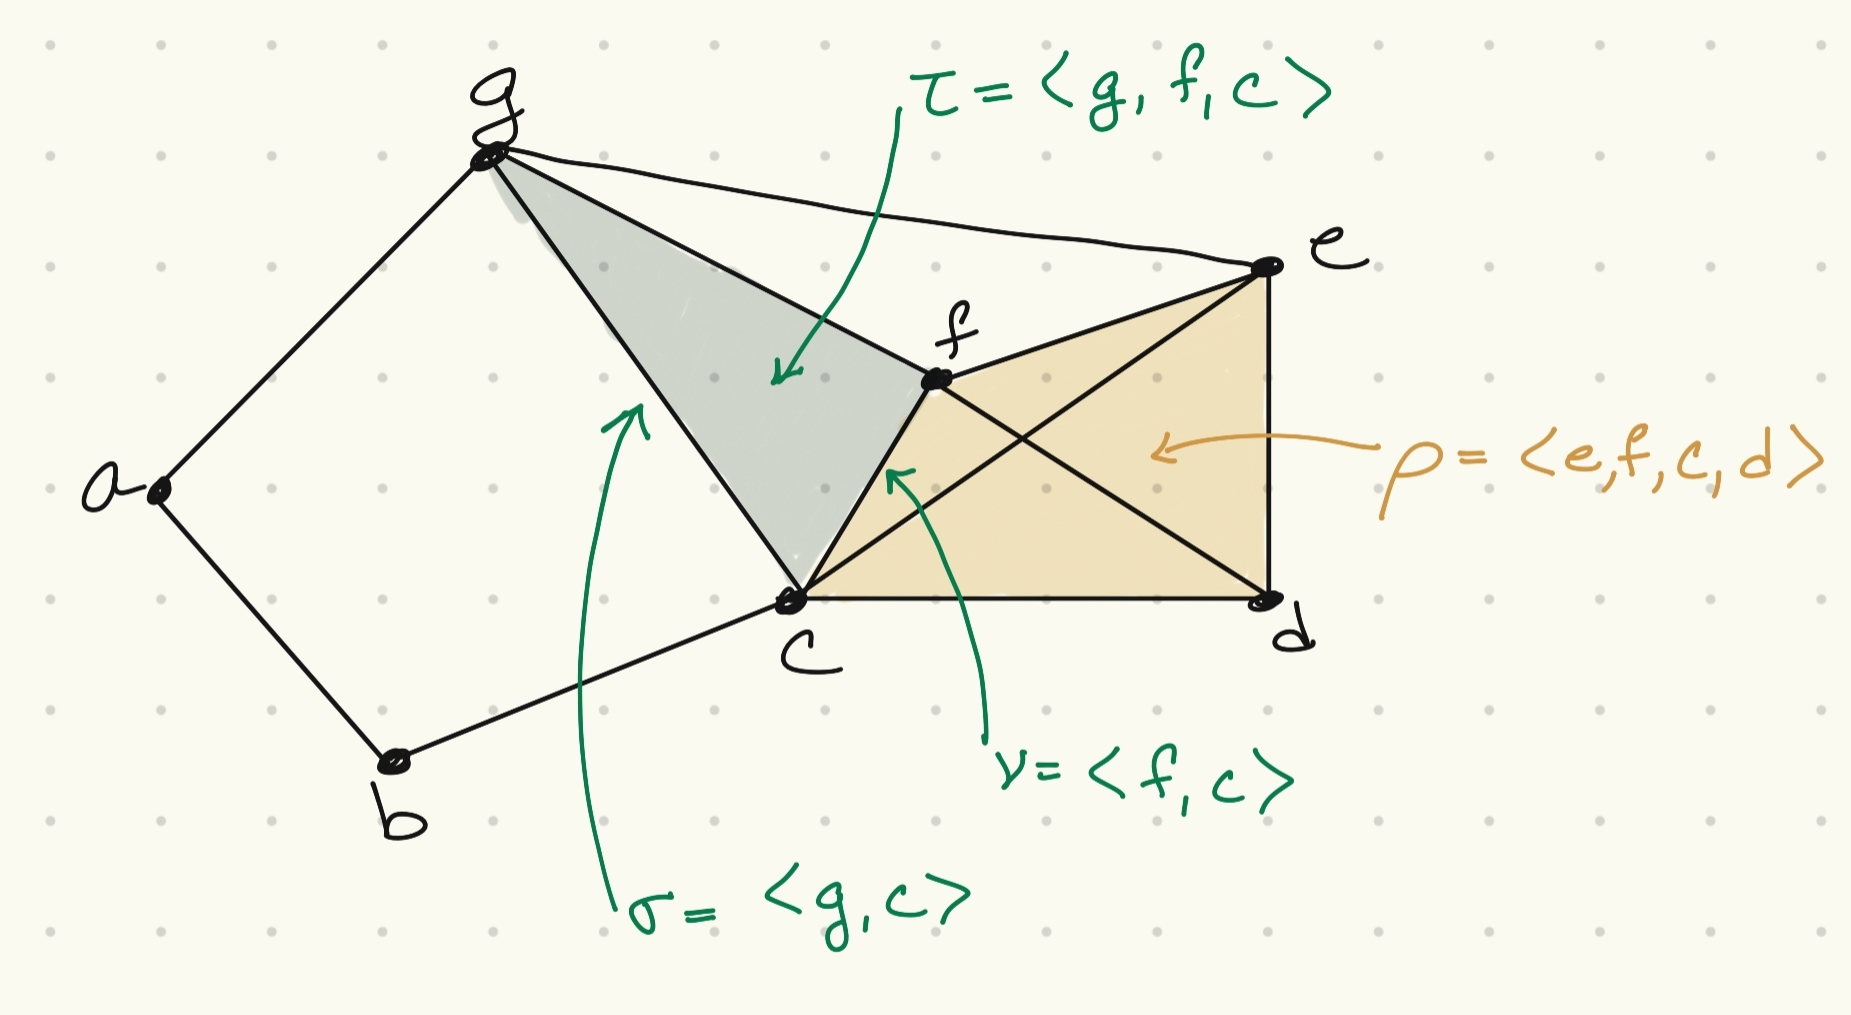 g
τ = <g, f, c>
e
f
a
ρ = <e, f, c, d>
c
d
ν = <f, c>
b
σ = <g, c>